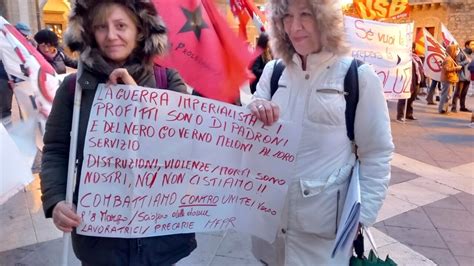 LA GUERRA IMPERIALISTA E I
PROFITTI SONO DI PADRONI
E DEL NERO GOVERNO MELONI AL LORO
SERVIZIO
DISTRUZIONI, VIOLENZE/MORTI SONO
NOSTRI, NOI NON CI STIAMO!!
COMBATTIAMO CONTRO UNITE/ verso
l'8 Marzo/Sciopero delle donne
LAVORATRICI/PRECARIE MFPR
Se vuoi
prepara